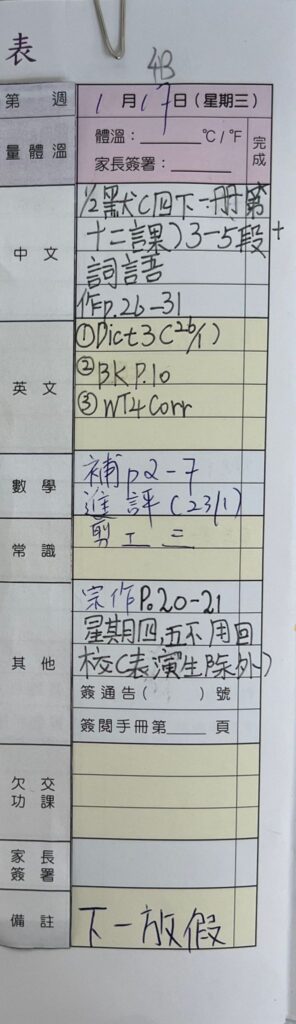 表
4B
第 週 1月17日(星期三)
量體溫 體溫:______ °C/°F 完成
家長簽署:______
中文 ½默(四下一冊第
十二課)3-5段+
詞語
作p.26-31
英文 ①Dict3(26/1)
②BK P.10
③WT4 Corr
數學 補p2-7
進評(23/1)
常識 剪工三
其他 宗作P.20-21
星期四,五不用回
校(表演生除外)
簽通告( )號
簽閱手冊第____頁
欠交功課
家長簽署
備註 下一放假